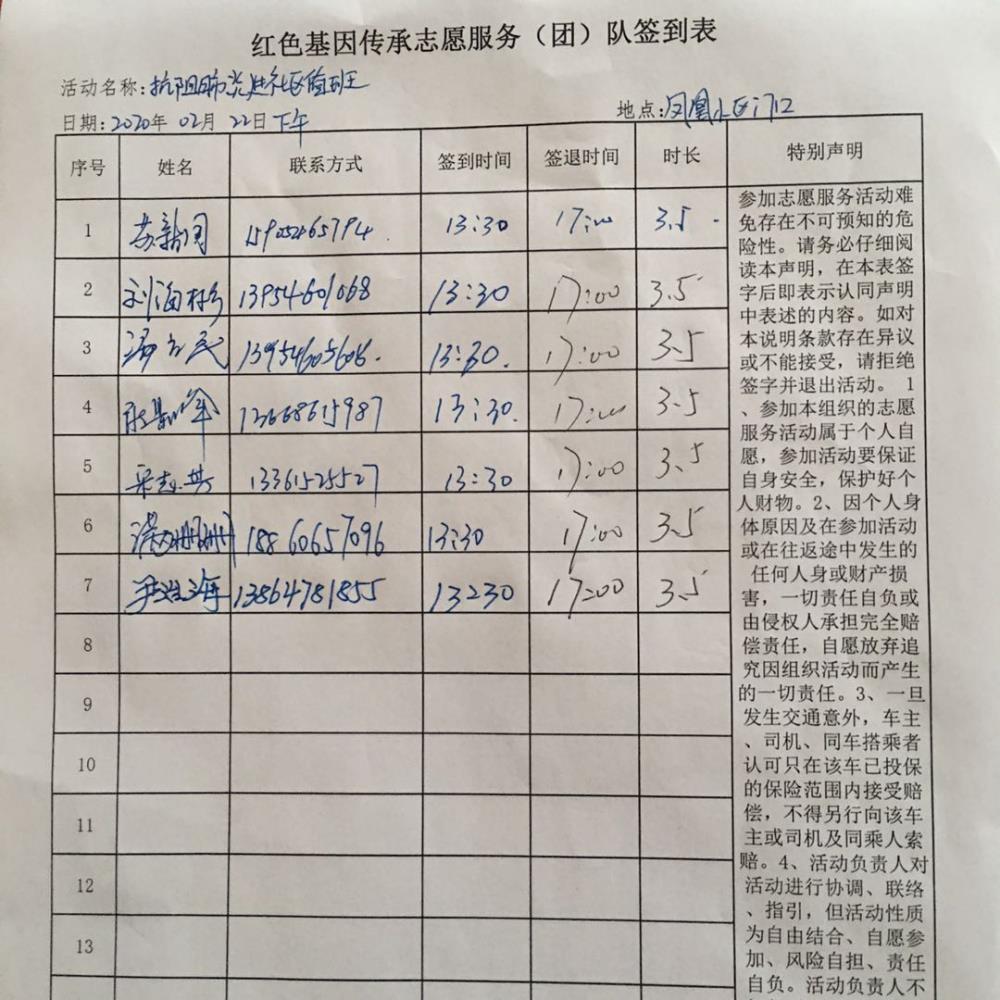 红色基因传承志愿服务（团）队签到表
活动名称：抗阻肺炎进社区值班
日期：2020年 02月 22日下午 地点：凤凰小区门口
序号 姓名 联系方式 签到时间 签退时间 时长 特别声明
1 15905465794 13:30 17:00 3.5
2 13954601068 13:30 17:00 3.5
3 13954605606 13:30 17:00 3.5
4 13668615987 13:30 17:00 3.5
5 13361525527 13:30 17:00 3.5
6 18860657096 13:30 17:00 3.5
7 13864781855 13:30 17:00 3.5
8
9
10
11
12
13
参加志愿服务活动难
免存在不可预知的危
险性。请务必仔细阅
读本声明，在本表签
字后即表示认同声明
中表述的内容。如对
本说明条款存在异议
或不能接受，请拒绝
签字并退出活动。 1
、参加本组织的志愿
服务活动属于个人自
愿，参加活动要保证
自身安全，保护好个
人财物。2、因个人身
体原因及在参加活动
或在往返途中发生的
任何人身或财产损
害，一切责任自负或
由侵权人承担完全赔
偿责任，自愿放弃追
究因组织活动而产生
的一切责任。3、一旦
发生交通意外，车主
、司机、同车搭乘者
认可只在该车已投保
的保险范围内接受赔
偿，不得另行向该车
主或司机及同乘人索
赔。4、活动负责人对
活动进行协调、联络
、指引，但活动性质
为自由结合、自愿参
加、风险自担、责任
自负。活动负责人不